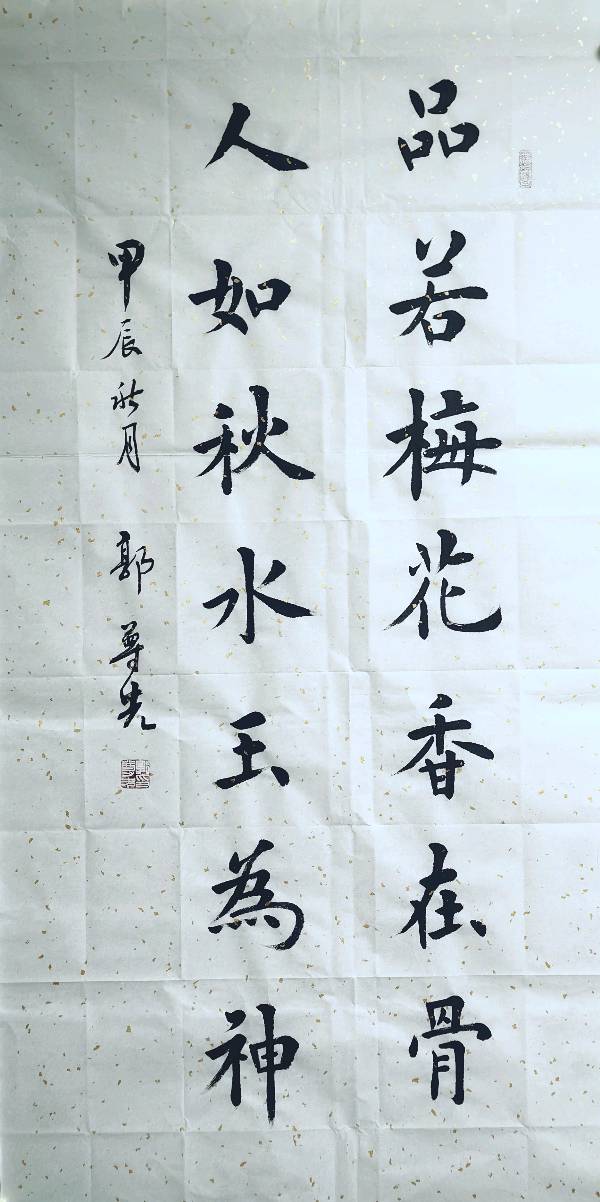 品若梅花香在骨
人如秋水玉為神
甲辰秋月 郭尊先